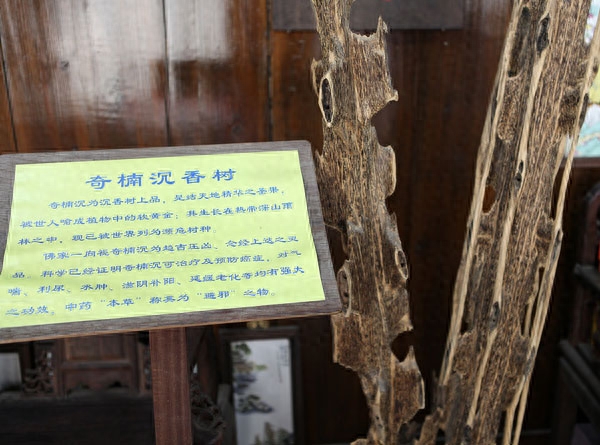 奇楠沉香树
奇楠沉为沉香树上品，是结天地精华之圣果，
被世人喻成植物中的软黄金；其生长在热带深山雨
林之中，现已被世界列为濒危树种。
佛家一向视奇楠沉为趋吉压凶、念经上达之灵
品，科学已经证明奇楠沉可治疗及预防癌症，对气
喘、利尿、水肿、滋阴补阳、延缓老化等均有强大
之功效。中药“本草”称奥为“避邪”之物。